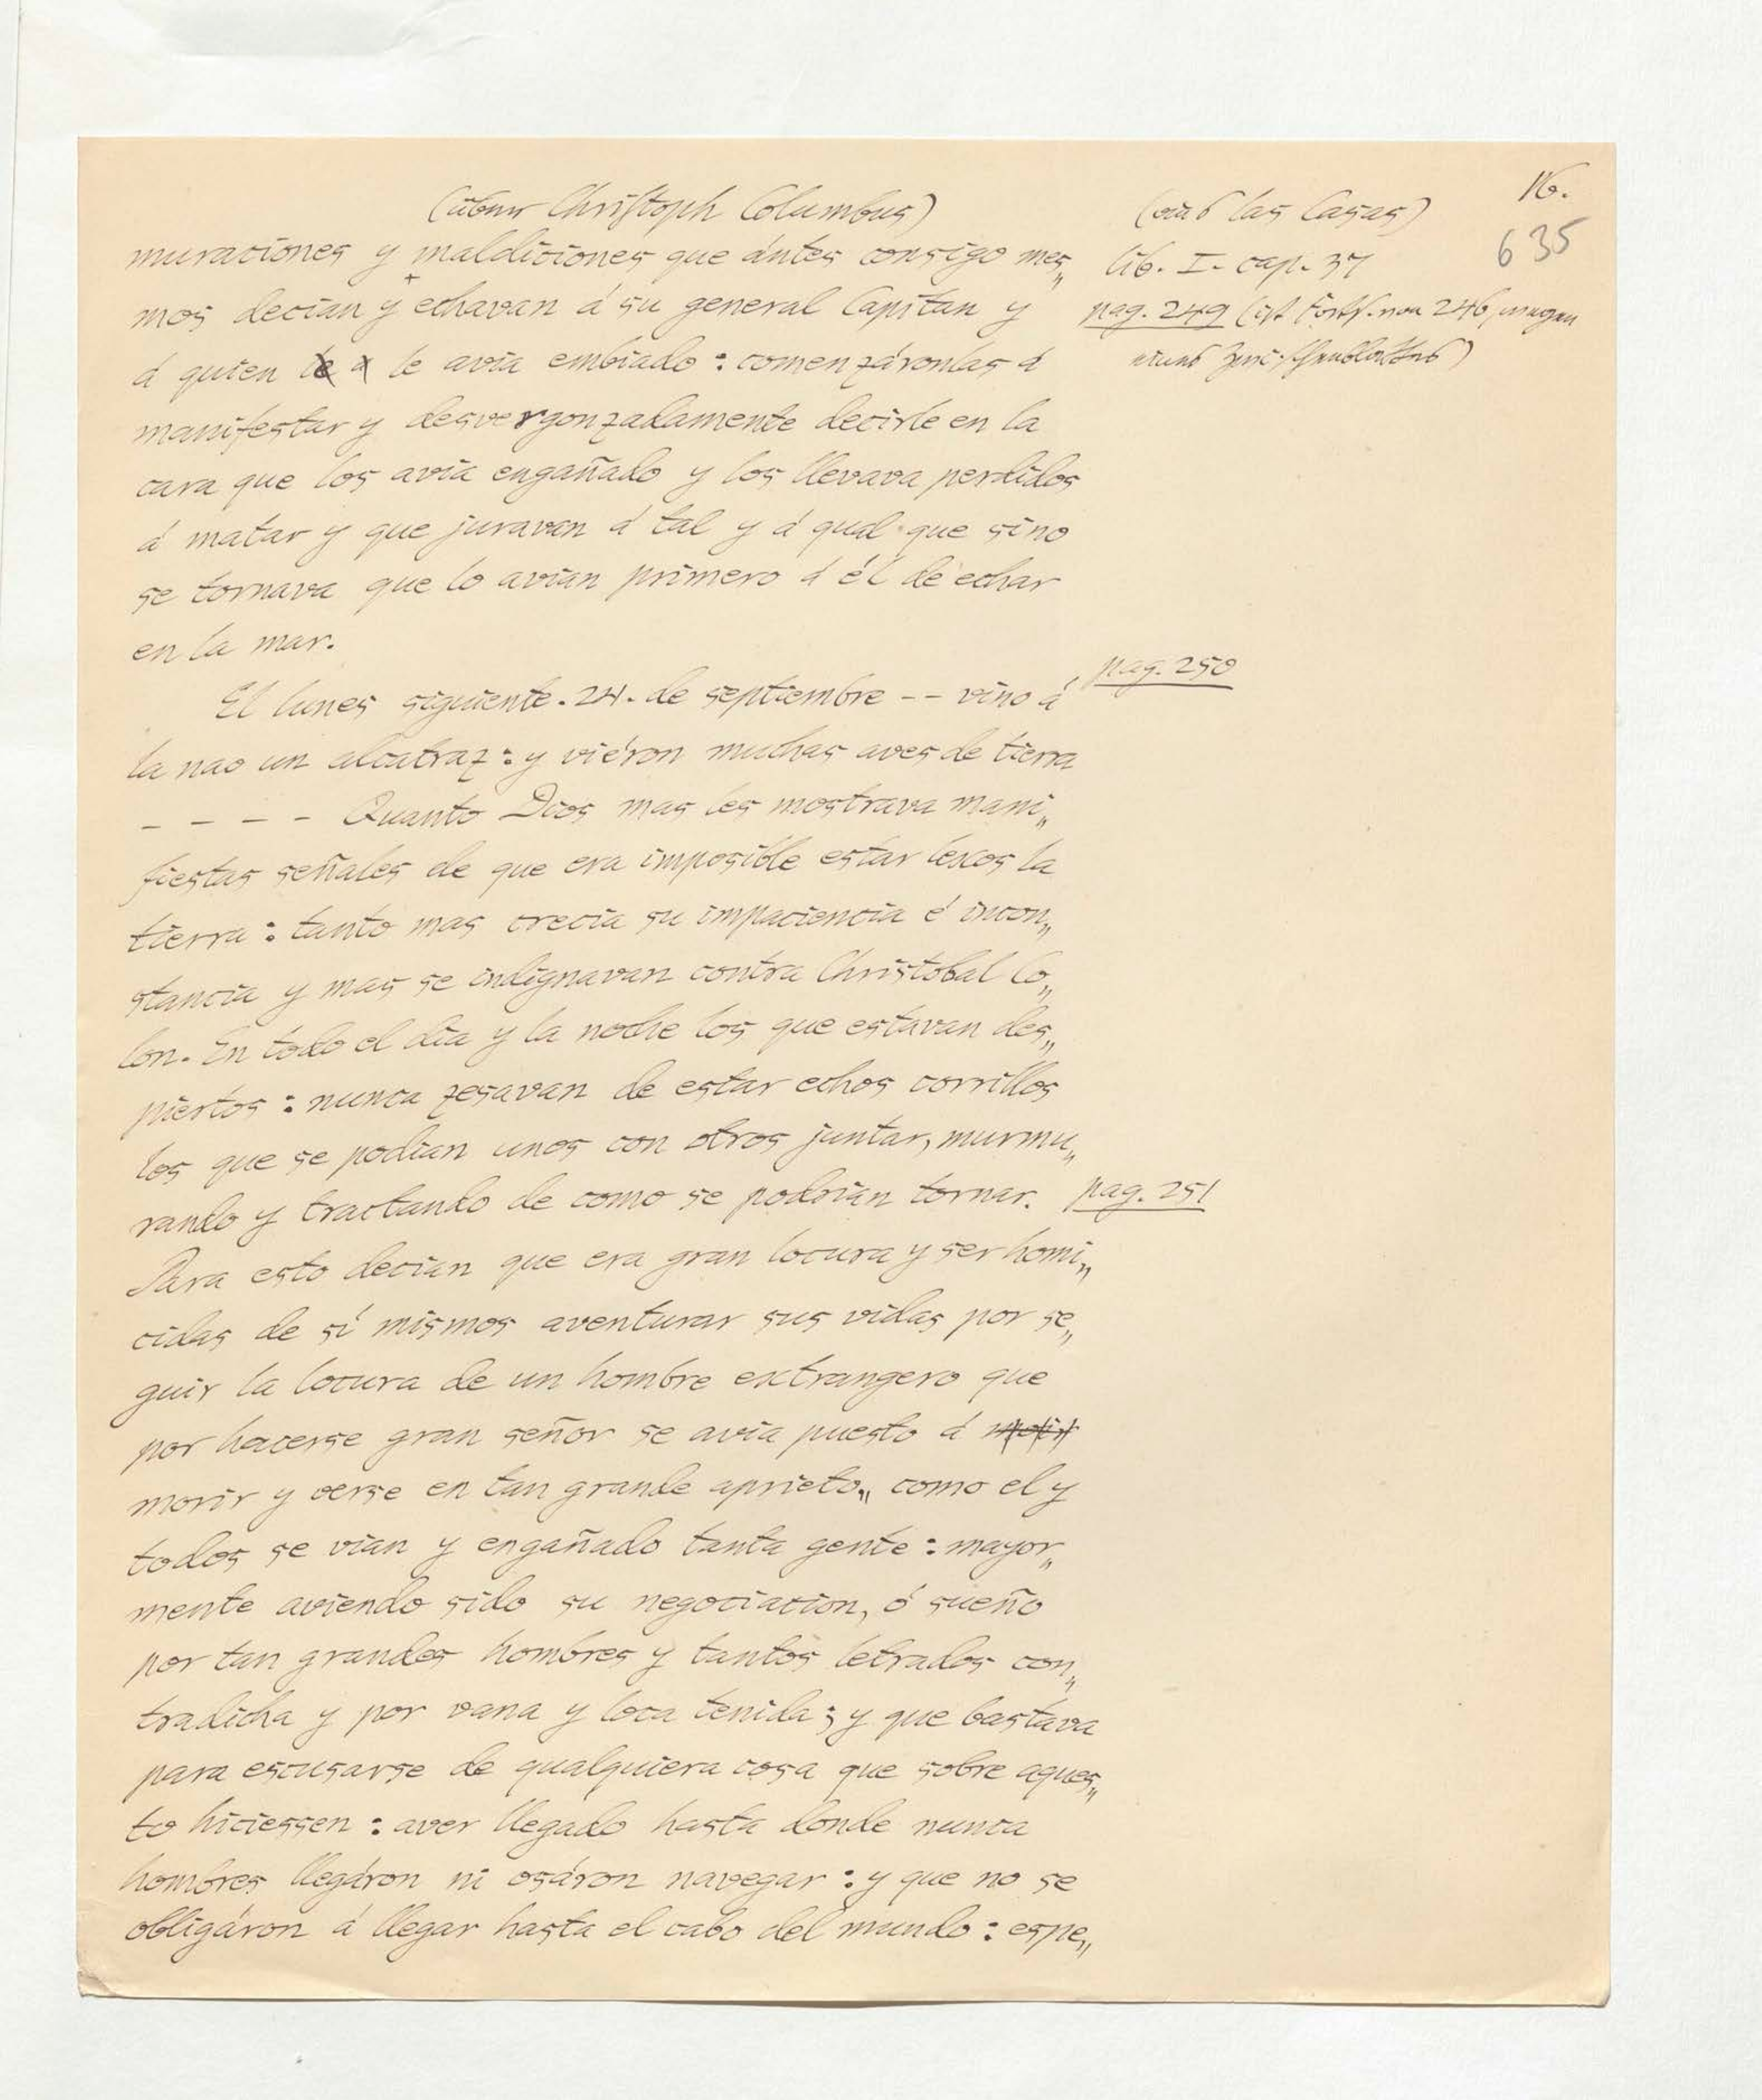 16.
(über Christoph Columbus) (aus las Casas)
635
muraciones y maldiciones que ántes consigo mes„ lib. I. cap. 37
mos decian y echavan á su general Capitan y pag. 249 (ist Forts. von 246, wegen
á quien le á le avia embiado: comenzáronlas á eines
manifestar y desvergonzadamente decirle en la
cara que los avia engañado y los llevava perdidos
á matar y que juravan á tal y á qual que sino
se tornava que lo avian primero á él de echar
en la mar.
El lunes siguiente. 24. de septiembre -- vino á pag. 250
la nao un alcatraz: y viéron muchas aves de tierra
- - - - Quanto Dios mas les mostrava mani„
fiestas señales de que era imposible estar lexos la
tierra: tanto mas crecia su impaciencia é incon„
stancia y mas se indignavan contra Christobal Co„
lon. En todo el dia y la noche los que estavan des„
piertos: nunca zesavan de estar echos corrillos
los que se podian unos con otros juntar, murmu„
rando y tractando de como se podrian tornar. pag. 251
Para esto decian que era gran locura y ser homi„
cidas de sí mismos aventurar sus vidas por se„
guir la locura de un hombre extrangero que
por hacerse gran señor se avia puesto á
morir y verse en tan grande aprieto„ como el y
todos se vian y engañado tanta gente: mayor„
mente aviendo sido su negociacion, ó sueño
por tan grandes hombres y tantos letrados con„
tradicha y por vana y loca tenida; y que bastava
para escusarse de qualquiera cosa que sobre aques„
to hiciessen: aver llegado hasta donde nunca
hombres llegáron ni osáron navegar: y que no se
obligáron á llegar hasta el cabo del mundo: espe„